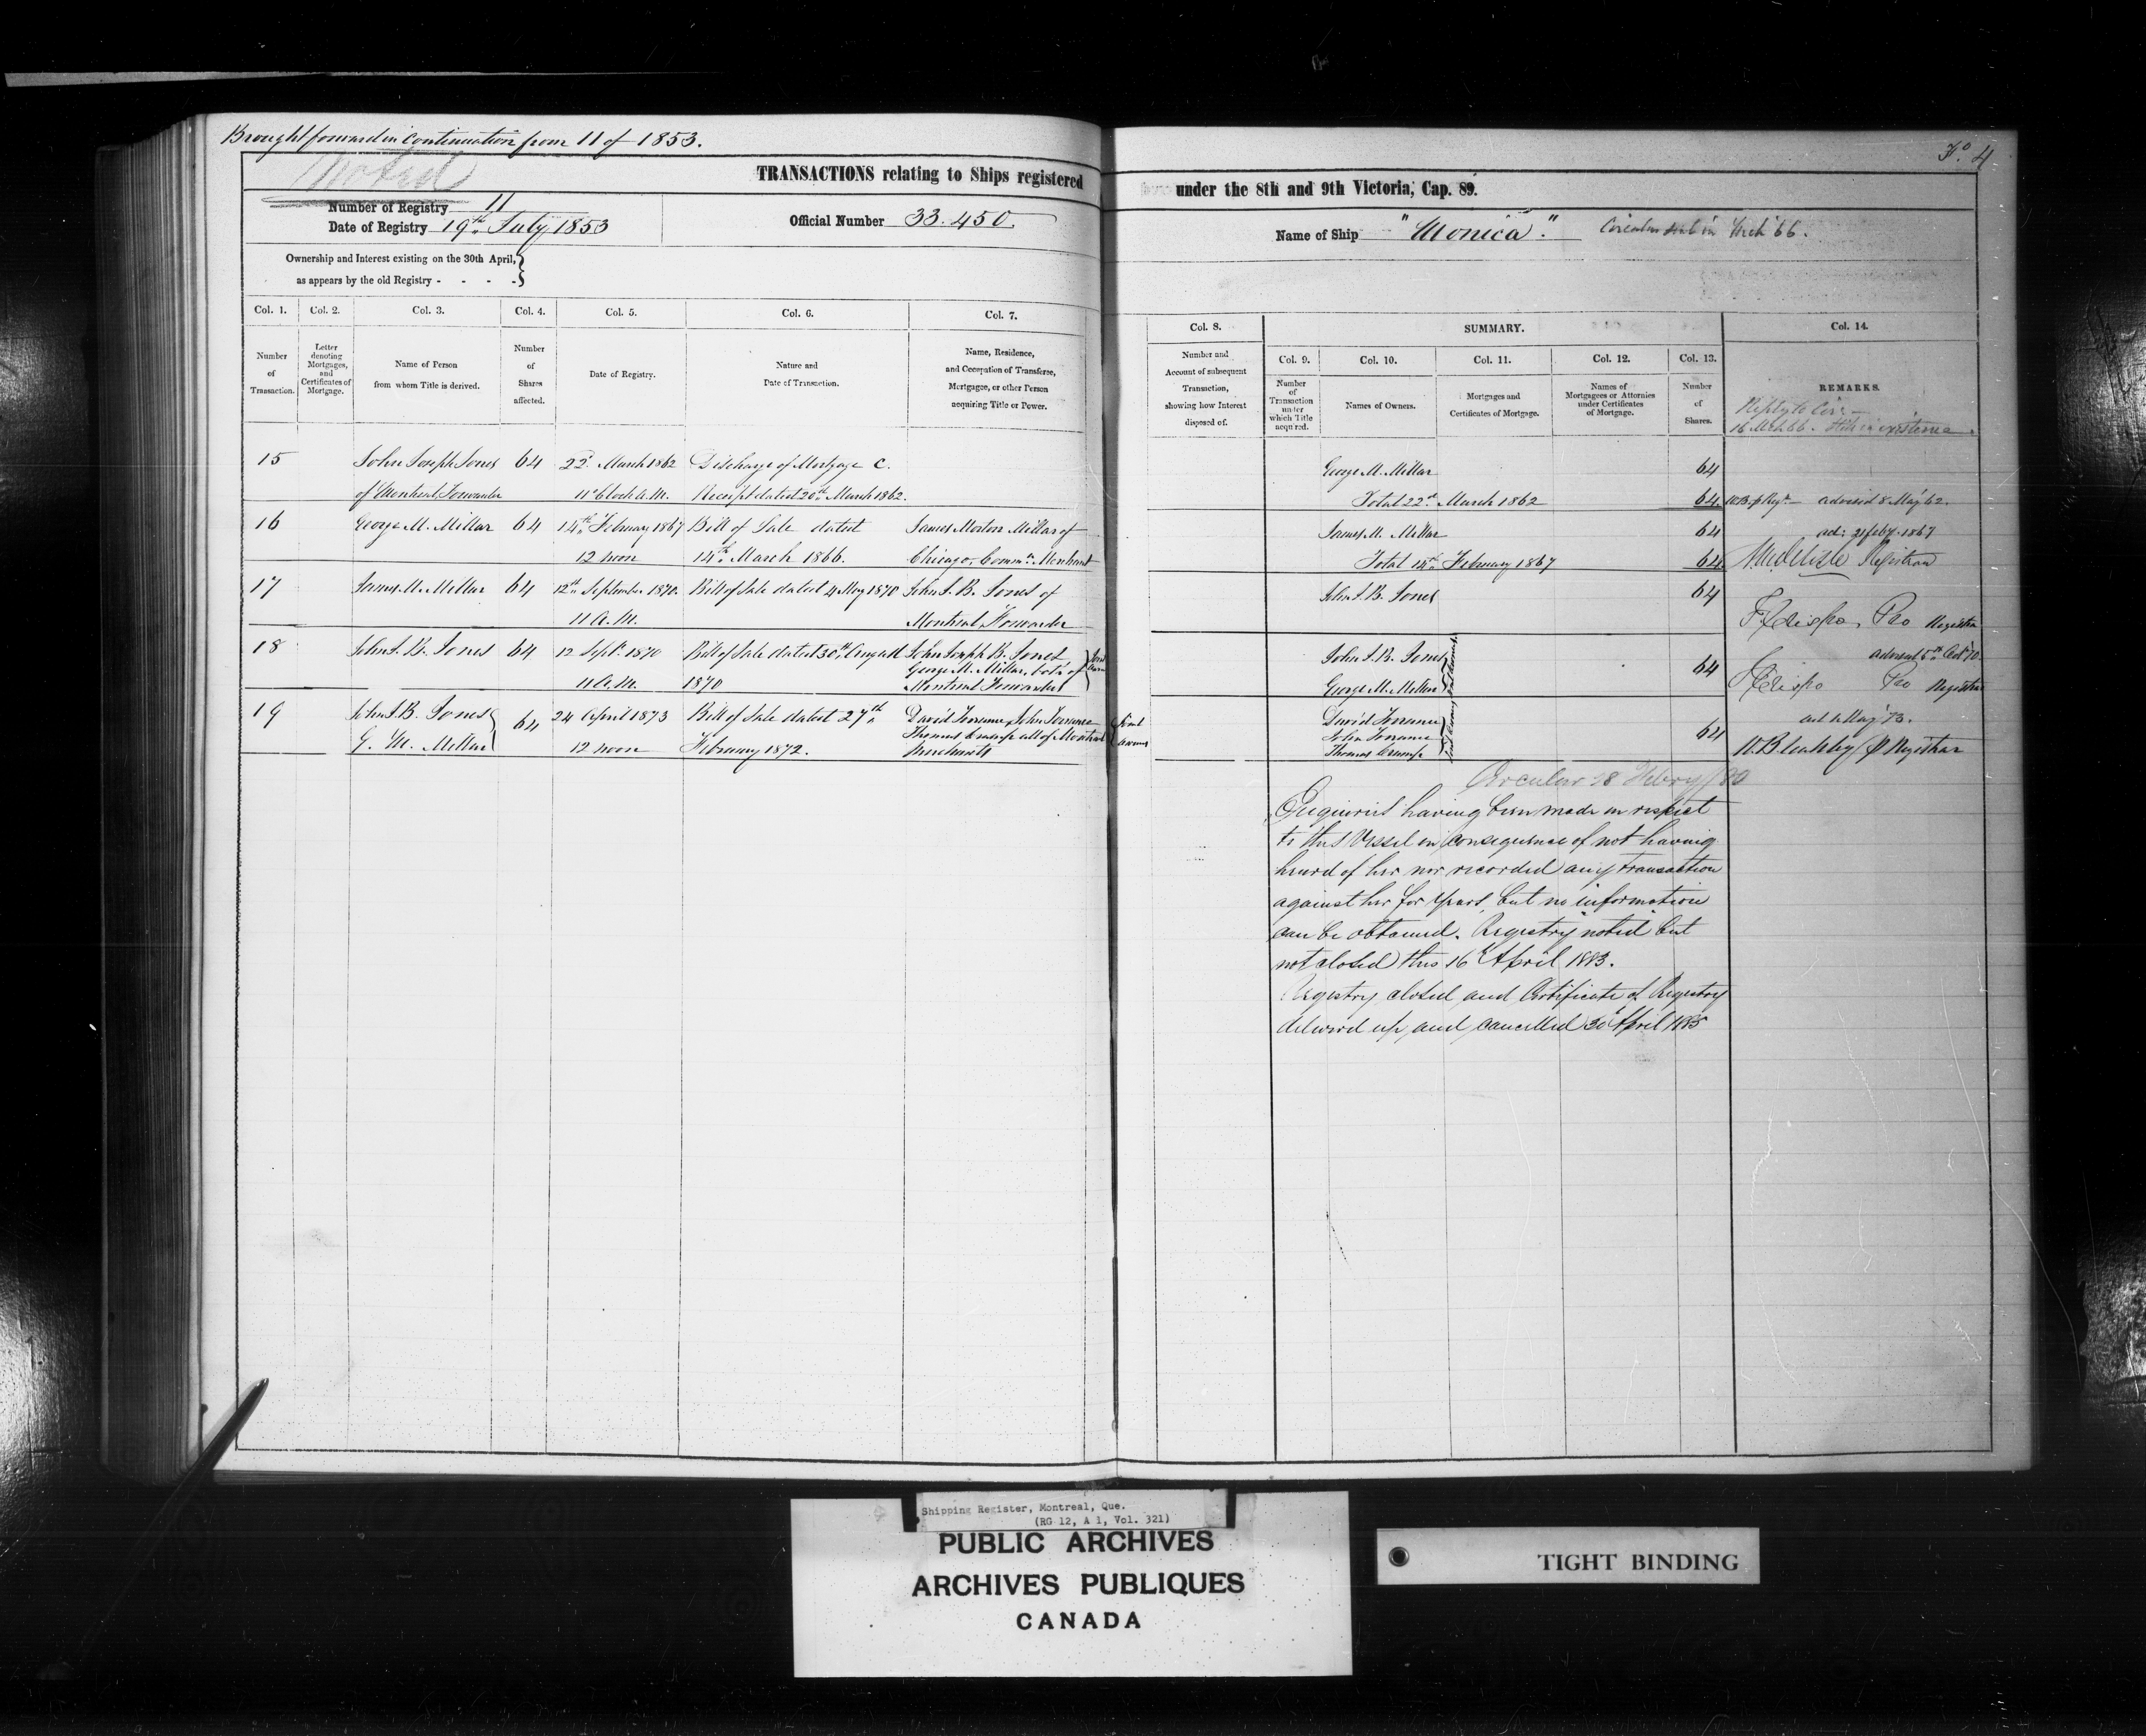 Brought forward in continuation from 11 of 1853.
Noted
Fo. 4
TRANSACTIONS relating to Ships registered under the 8th and 9th Victoria, Cap. 89.
Number of Registry 11
Date of Registry 19th July 1853
Official Number 33.450
Name of Ship "Monica". Circular sent in Mch 66.
Ownership and Interest existing on the 30th April,
as appears by the old Registry - - - -
Col. 1. Col. 2. Col. 3. Col. 4. Col. 5. Col. 6. Col. 7. Col. 8. SUMMARY. Col. 14.
Col. 9. Col. 10. Col. 11. Col. 12. Col. 13.
Number of Transaction.
Letter denoting Mortgages, and Certificates of Mortgage.
Name of Person from whom Title is derived.
Number of Shares affected.
Date of Registry.
Nature and Date of Transaction.
Name, Residence, and Occupation of Transferee, Mortgagee, or other Person acquiring Title or Power.
Number and Account of subsequent Transaction, showing how Interest disposed of.
Number of Transaction under which Title acquired.
Names of Owners.
Mortgages and Certificates of Mortgage.
Names of Mortgagees or Attornies under Certificates of Mortgage.
Number of Shares.
REMARKS.
Reply to Cir -
16 Mch 66. still in existence.
15 John Joseph Jones 64 22d March 1862 Discharge of Mortgage C. George M. Millar 64
of Montreal, Forwarder 11 o'Clock A.M. Receipt dated 20th March 1862. Total 22d March 1862 64 advised 8 May 62.
16 George M. Millar 64 14th February 1867 Bill of Sale dated James Morton Millar of James M. Millar 64 ad: 21 feby. 1867
12 noon 14th March 1866. Chicago, Commn. Merchant Total 14th February 1867 64 Registrar
17 James M. Millar 64 12th September 1870. Bill of Sale dated 4 May 1870 John J. B. Jones of John J. B. Jones 64
11 A.M. Montreal, Forwarder Pro Registrar
18 John J. B. Jones 64 12 Septr. 1870 Bill of Sale dated 30th August John Joseph B. Jones John J. B. Jones 64 advised 5th Oct 70.
11 A.M. 1870 George M. Millar, both of Montreal Forwarders Joint Owners George M. Millar Pro Registrar
19 John J. B. Jones 64 24 April 1873 Bill of Sale dated 27th David Torrance, John Torrance David Torrance 64 May 73.
G. M. Millar 12 noon February 1872. Thomas Cramp all of Montreal Merchants Joint Owners John Torrance Thomas Cramp Registrar
Circular 28 Febry/80
Enquiries having been made in respect
to this Vessel in consequence of not having
heard of her nor recorded any transaction
against her for years, but no information
can be obtained. Registry "noted" but
not closed this 16th April 1883.
Registry closed and Certificate of Registry
delivered up and cancelled 30th April 1885
Shipping Register, Montreal, Que.
(RG 12, A 1, Vol. 321)
PUBLIC ARCHIVES
ARCHIVES PUBLIQUES
CANADA
TIGHT BINDING